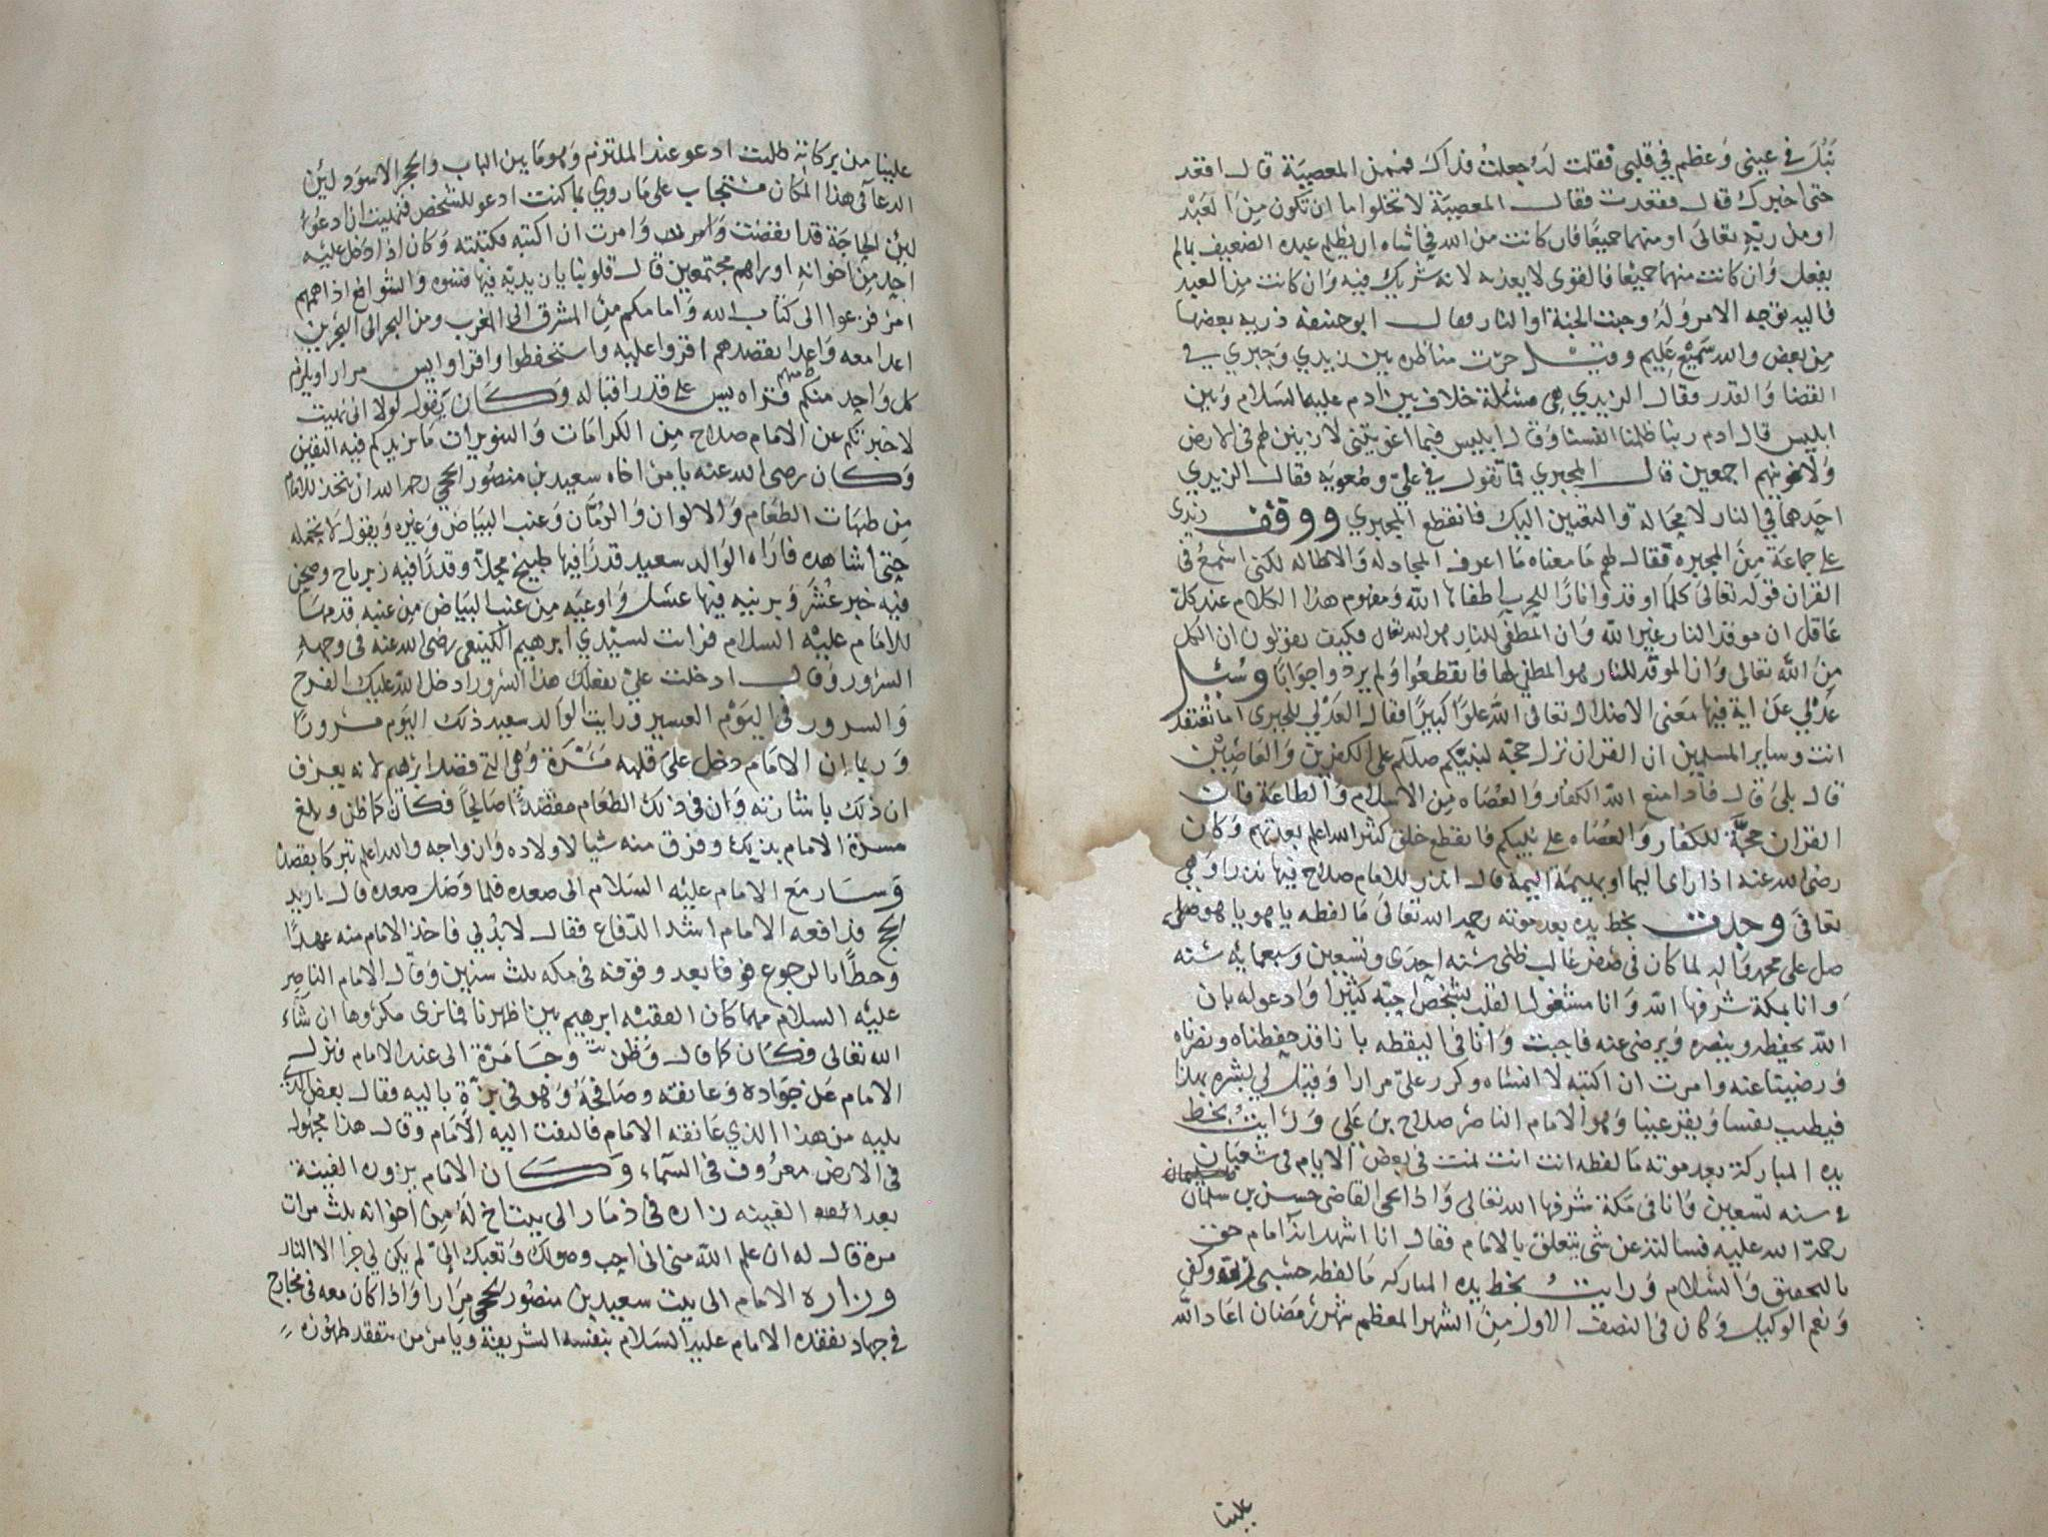 نبل في عيني وعظم في قلبي فقلت له جعلت فداك فممن المعصية قال اقعد
حتى اخبرك قال فقعدت فقال المعصية لا تخلوا ما ان تكون من العبد
او من ربه تعالى او منهما جميعا فان كانت من الله في اشاه ان يظلم عبده الضعيف بما لم
يفعل وان كانت منهما جميعا فالقوى لا يعذبه لانه شريك فيه وان كانت من العبد
فاليه توجه الامر وله وجبت الجنة او النار فقال ابو حنيفة ذرية بعضها
من بعض والله سميع عليم وقيل جرت مناظرة بين زيدي وجبري في
القضا والقدر فقال الزيدي هي مسئلة خلاف بين ادم عليه السلام وبين
ابليس قال ادم ربنا ظلمنا انفسنا وقال ابليس فبما اغويتني لازينن لهم في الارض
ولاغوينهم اجمعين قال المجبري فما تقول في علي ومعوية فقال الزيدي
احدهما في النار لا محالة والتعيين اليك فانقطع المجبري ووقف زيدي
على جماعة من المجبرة فقال لهم ما معناه ما اعرف المجادلة والاطالة لكني اسمع في
القران قوله تعالى كلما اوقدوا نارا للحرب اطفاها الله ومفهوم هذا الكلام عند كل
عاقل ان موقد النار غير الله وان المطفي للنار هو الله تعالى فكيف تقولون ان الكل
من الله تعالى وان الموقد للنار هو المطفي لها فانقطعوا ولم يردوا جوابا وسئل
عدلي عن اية فيها معنى الاضلال تعالى الله علوا كبيرا فقال العدلي للجبري اما تعتقد
انت وساير المسلمين ان القران نزل حجة لنبيكم صلعم على الكفرين والعاصين
قال بلى قال فاذا منع الله الكفار والعصاه من الاسلام والطاعة فان
القران حجة للكفار والعصاه على نبيكم فانقطع خلق كثير الله اعلم بعدتهم وكان
رضي الله عنه اذا راى اليما او بهيمة اليمة قال انذر للامام صلاح فيها نذرا وهي
تعافى وجدت بخط يده بعد موته رحمه الله تعالى ما لفظه يا هو يا هو
صل على محمد واله لما كان في صفر غالب ظني سنه احدى وتسعين وسبعمايه سنه
وانا بمكة شرفها الله وانا مشغول القلب بشخص احبه كثيرا وادعوله بان
الله يحفظه وينصره ويرضى عنه فاجبت وانا في اليقظه بانا قد حفظناه ونصرناه
ورضينا عنه وامرت ان اكتبه لا انساه وكرر علي مرارا وقيل لي بشره بهذا
فيطب نفسا ويقر عينا وهو الامام الناصر صلاح بن علي ورايت بخط
يده المباركة بعد موته ما لفظه انت انت نمت في بعض الايام في شعبان
في سنه تسعين وانا في مكة شرفها الله تعالى واذا بحي القاضي حسن بن سلمان
رحمة الله عليه فسالته عن شي يتعلق بالامام فقال انا اشهد انه امام حق
بالتحقيق والسلام ورايت بخط يده المباركه ما لفظه حسبي الله وكفى
ونعم الوكيل وكان في النصف الاول من الشهر المعظم شهر رمضان اعاد الله
علينا
علينا من بركاته طلت ادعو عند الملتزم وهو ما بين الباب والحجر الاسود لين
الدعا في هذا المكان مستجاب على ما روي بما كنت ادعو للشخص فنهيت ان ادعو
لين الحاجة قد انقضت وامرت ان اكتبه فكتبته وكان اذا دخل عليه
احد من اخوانه اوراهم مجتمعين قال قلوبنا يابسه فيها قسوه
امر فزعوا الى كتاب الله وامامكم من المشرق الى المغرب ومن البحر الى البحرين
اعدا معه واعدا بقصدهم اقروا عليه واستحفظوا واقراوا يس مرارا ويلزم
كل واحد منكم قراه يس على قدر اقباله وكان يقول لولا اني نهيت
لاخبرتكم عن الامام صلاح من الكرامات والتنويرات ما يزيدكم فيه اليقين
وكان رضي الله عنه يامر اخاه سعيد بن منصور الحجي رحمه الله ان يتخذ للامام
من طيبات الطعام والالوان والرمان وعنب البياض وغيره ويقول لا تحمله
حتى اشاهده فاراه الوالد سعيد قدرا فيها طبيخ محلا وقدرا فيه زيرباج وصحن
فيه خبز عشر وبرنيه فيها عسل واوعيه من عنب البياض من عنبه قدمها
للامام عليه السلام فرات لسيدي ابرهيم الكينعي رضي الله عنه في وجهه
السرور وقال ادخلت علي بفعلك هذا السرور ادخل الله عليك الفرح
والسرور في اليوم العسير ورايت الوالد سعيد ذلك اليوم مسرورا
وريا ان الامام دخل على قلبه مسرة وهي التي قصد ابرهيم لانه يعرف
ان ذلك باشارته وان في ذلك الطعام مقصدا صالحا فكان كما ظن وبلغ
مسرة الامام بذلك وفرق منه شيا لاولاده وازواجه والله اعلم تبركا بقصده
وسار مع الامام عليه السلام الى صعده فلما وصل صعده قال اريد
الحج فدافعه الامام اشد الدفاع فقال لا بد لي فاخذ الامام منه عهدا
وخطا بالرجوع فوقفه في مكه ثلث سنين وقال الامام الناصر
عليه السلام مهما كان الفقيه ابرهيم بين اظهرنا فما نرى مكروها ان شاء
الله تعالى فكان كما قال وظن وجا مرة الى عند الامام فنزل
الامام عن جواده وعانقه وصافحه وهو في بزة باليه فقال بعض
من هذا الذي عانقه الامام فالتفت اليه الامام وقال هذا مجهول
في الارض معروف في السماء وكان الامام يزوره الفينة
بعد الفينه زاره في ذمار الى بيت اخ له من اخوانه ثلث مرات
مرة قال له ان علم الله مني اني احب وصولك وتعبك الي لم يكن لي جزا الا النار
وزاره الامام الى بيت سعيد بن منصور الحجي مرارا واذا كان معه في مخارج
في جهاد تفقده الامام عليه السلام بنفسه الشريفة ويامر من يتفقد طهوره